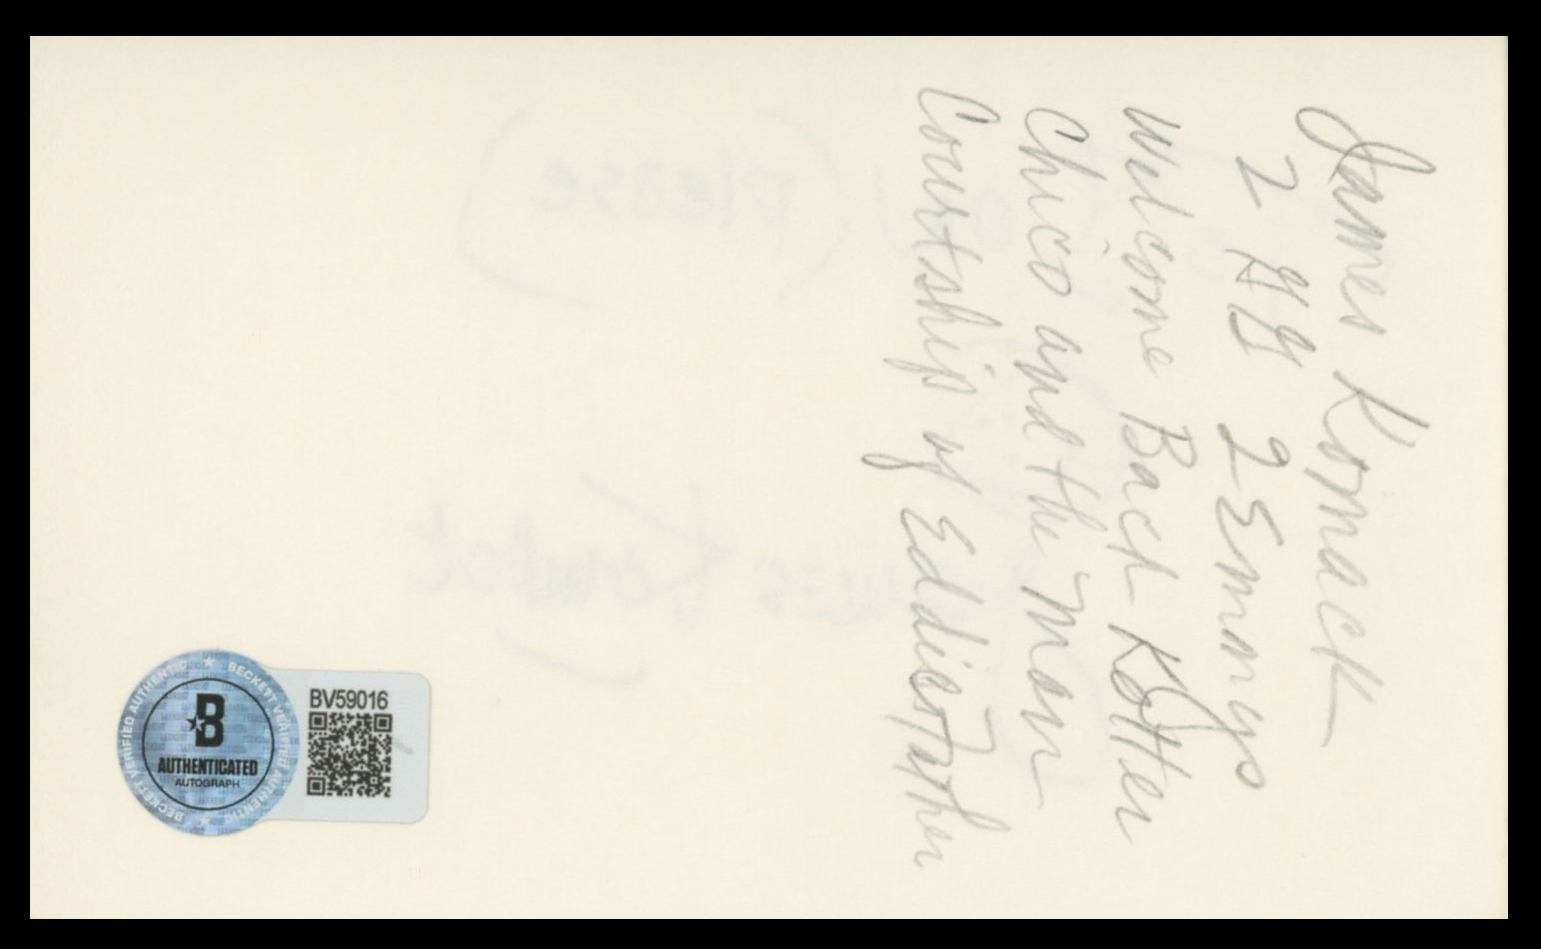 James Komack
2 2 Emmys
Welcome Back Kotter
Chico and the Man
Courtship of Eddies Father
(please)
James Komack
BECKETT VERIFIED AUTHENTIC
B
AUTHENTICATED
AUTOGRAPH
BV59016